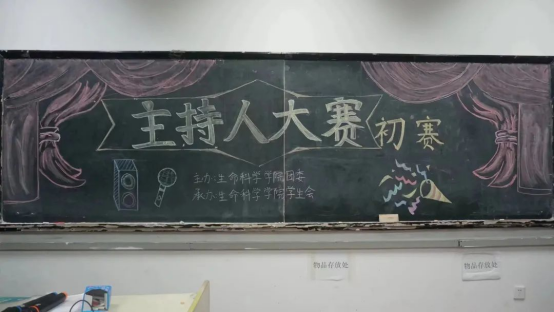 主持人大赛 初赛
主办:生命科学学院团委
承办:生命科学学院学生会
物品存放处
物品存放处